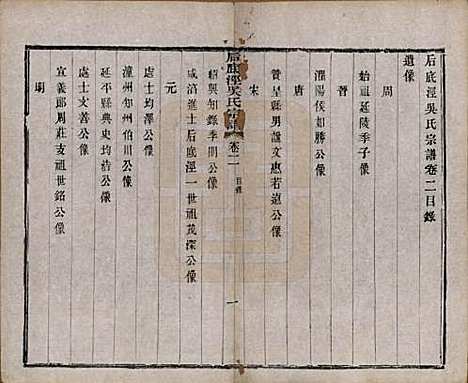 后底涇吳氏宗譜卷二目錄
遺像
周
始祖延陵季子像
晉
灌陽侯如勝公像
唐
贊皇縣男諡文惠若遠公像
宋
后底涇吳氏宗譜
卷二
目錄
一
紹興知錄季開公像
咸淳進士后底涇一世祖茂深公像
元
處士均澤公像
潼州知州伯川公像
延平縣典史均浩公像
處士文善公像
宣義郎周莊支祖世銘公像
明